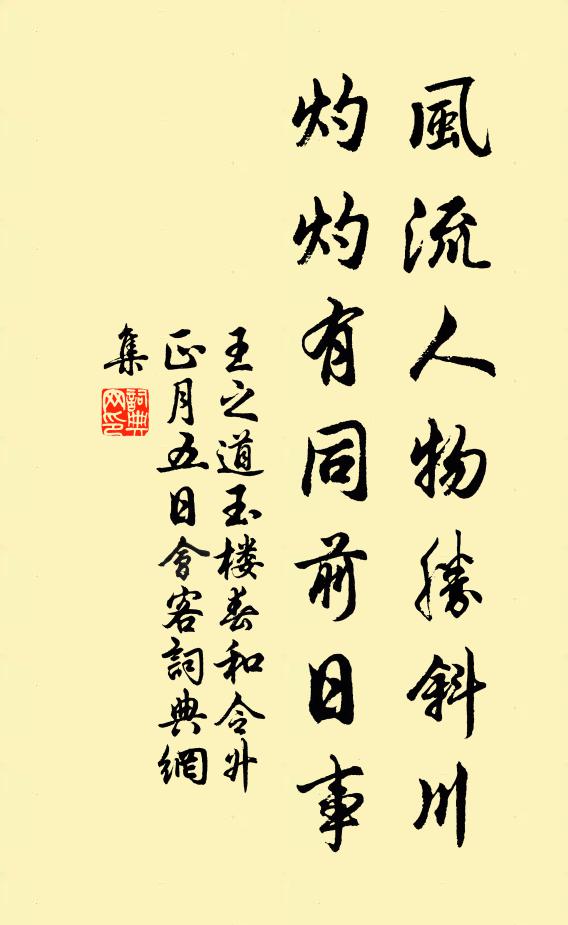 風流人物勝斜川
灼灼有同前日事
王之道玉楼春和令升
正月五日會客詞典網
集
詞典网印